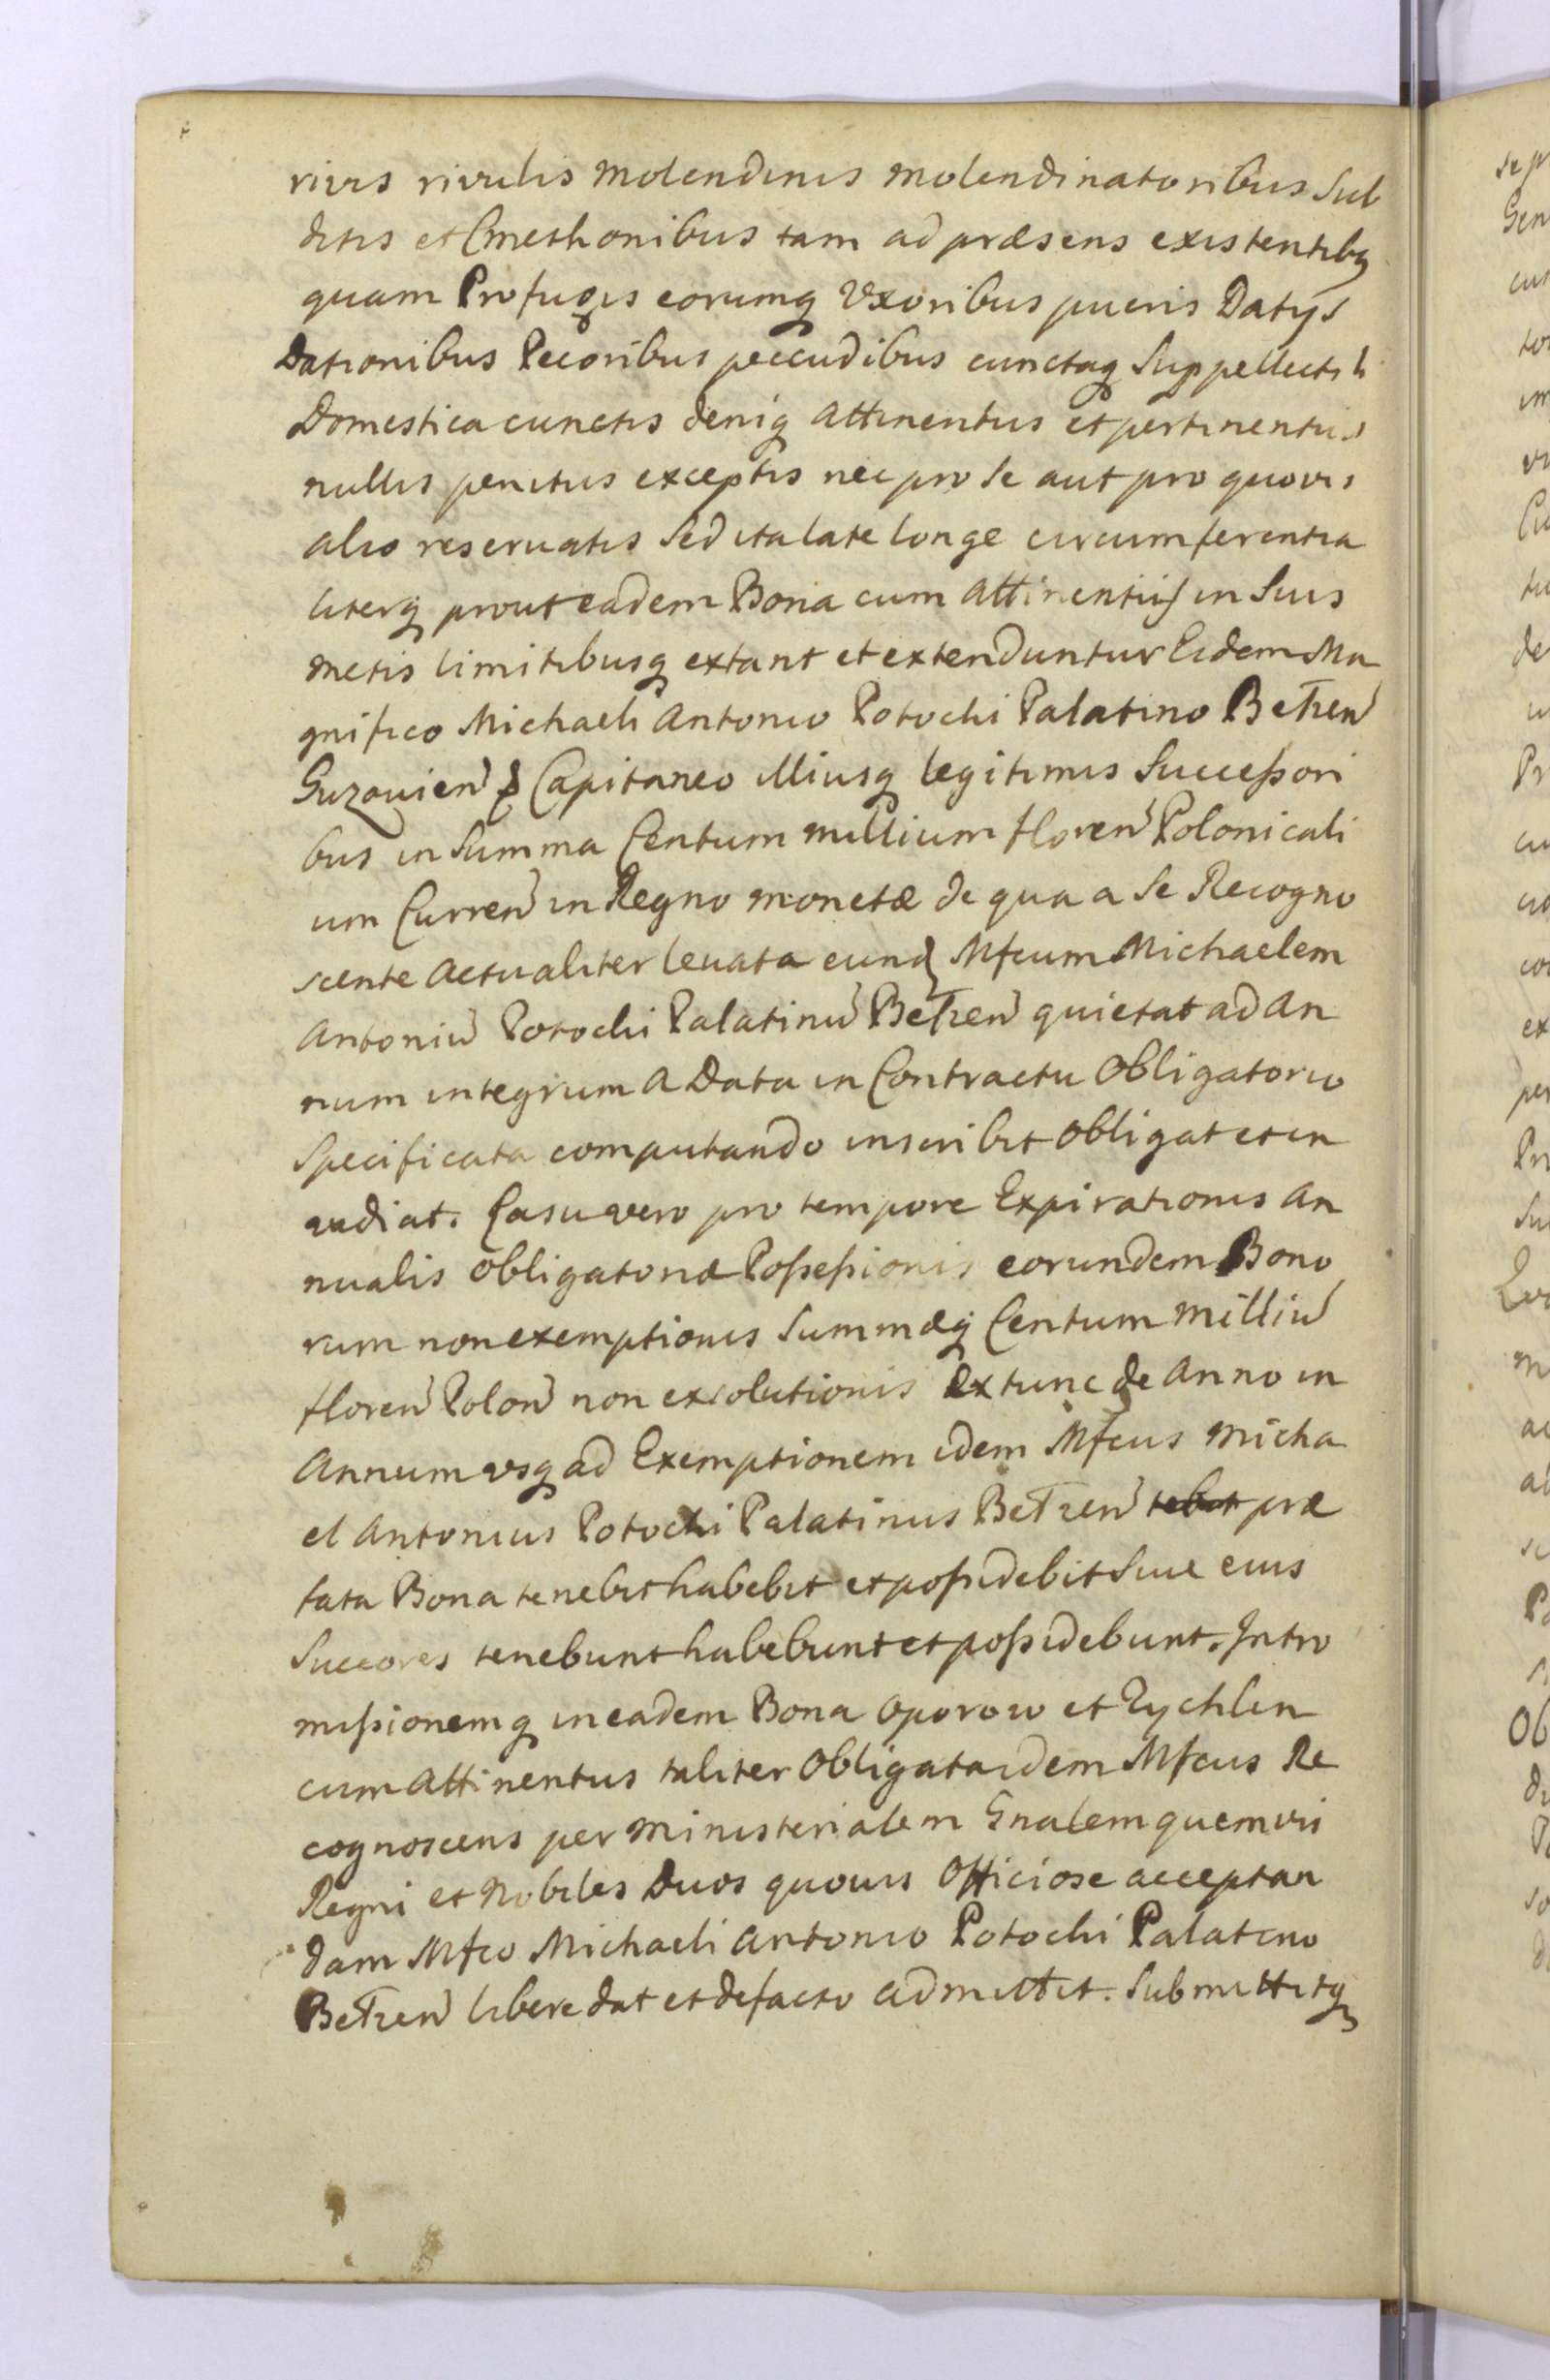 rivis rivulis Molendinis Molendinatoribus Sub
ditis et Cmethonibus tam ad præsens existentibq
quam Profugis eorumq Vxoribus pueris Datys
Dationibus Pecoribus peccudibus cunctaq Suppellectili
Domestica cunctis deniq Attinentiis et pertinentiis
nullis penitus exceptis nec pro se aut pro quovis
alio reseruatis Sed ita late longe circumferentia
literq prout eadem Bona cum Attinentiis in Suis
metis limitibusq extant et extenduntur Eidem Ma
gnifico Michaeli Antonio Potocki Palatino BeTzen
Guzouien Capitaneo illiusq legitimis Successori
bus in Summa Centum millium floren Polonicali
um Curren in Regno monetæ de qua a Se Recogno
scente Actualiter leuata eund Mfcum Michaelem
Antoniu Potocki Palatinu BeTzen quietat ad An
num integrum A Data in Contractu Obligatorio
Specificata computando inscribit obligat et in
vadiat. Casu vero pro tempore Expirationis An
nualis obligatoriæ Possessionis eorundem Bono
rum non exemptionis Summæq Centum milliu
floren Polon non exsolutionis Extunc de Anno in
Annum vsq ad Exemptionem idem Mfcus Micha
el Antonius Potocki Palatinus BeTzen tebit præ
fata Bona tenebit habebit et possidebit Siue eius
Succores tenebunt habebunt et possidebunt. Intro
missionemq in eadem Bona Oporow et Rychlin
cum Attinentiis taliter Obligata idem Mfcus Re
cognoscens per Ministerialem Gnalem quemvis
Regni et Nobiles Duos quouis Officiose acceptan
dam Mfco Michaeli Antonio Potocki Palatino
BeTzen libere dat et defacto admittit. Submittitq